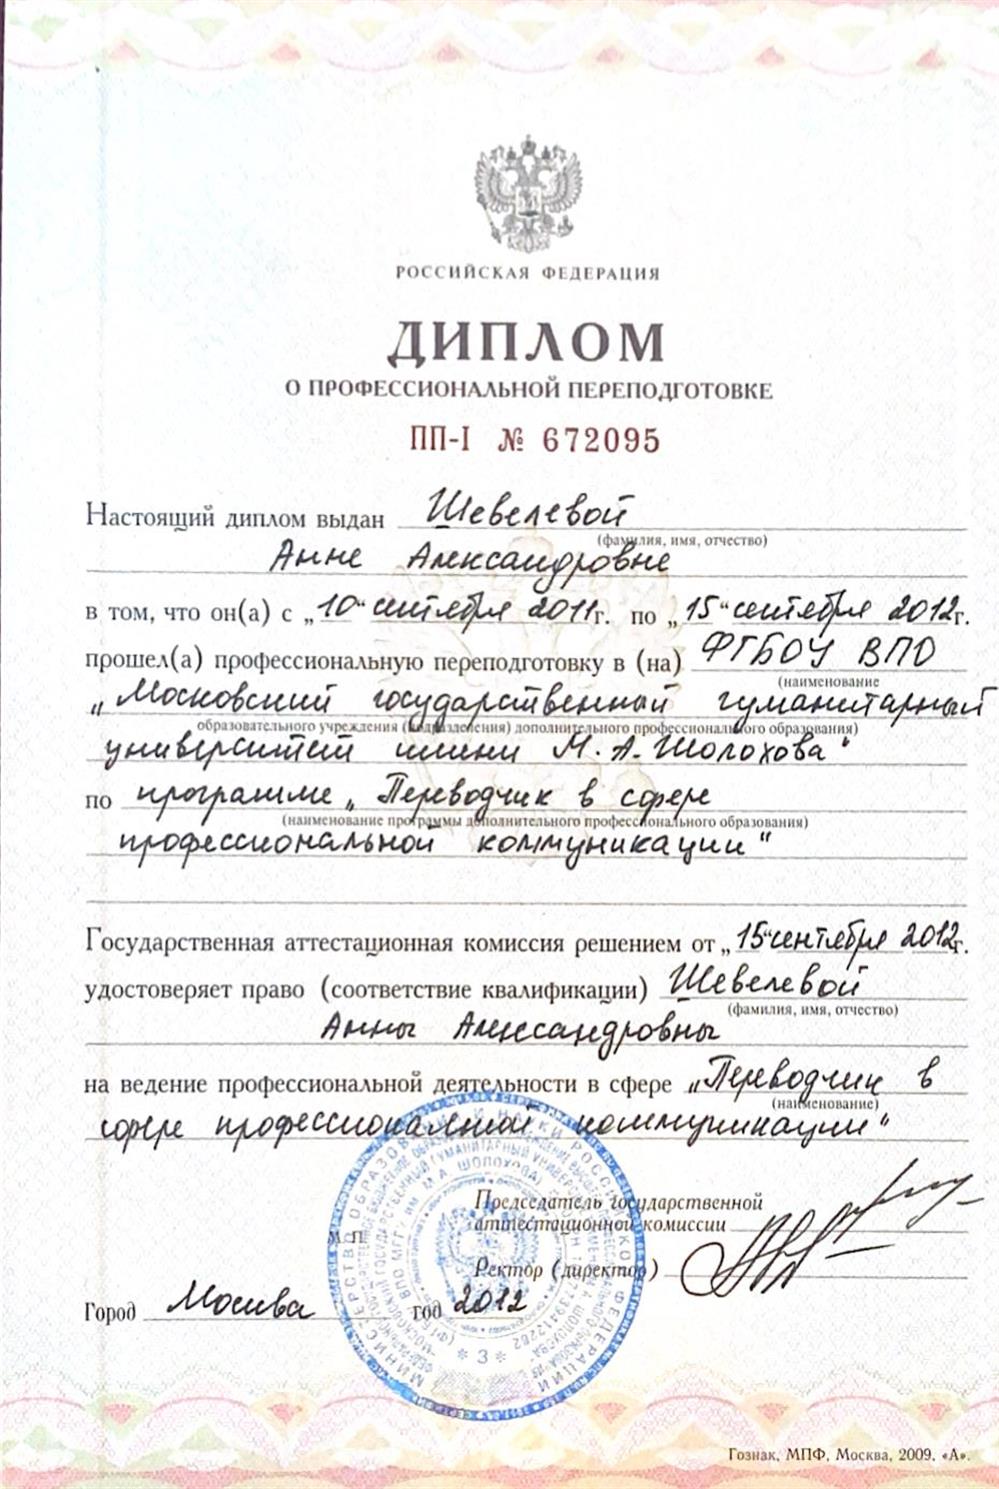 РОССИЙСКАЯ ФЕДЕРАЦИЯ
ДИПЛОМ
О ПРОФЕССИОНАЛЬНОЙ ПЕРЕПОДГОТОВКЕ
ПП-I № 672095
Настоящий диплом выдан Шевелевой
(фамилия, имя, отчество)
Анне Александровне
в том, что он(а) с „10“ сентября 2011г. по „15“ сентября 2012г.
прошел(а) профессиональную переподготовку в (на) ФГБОУ ВПО
(наименование
„Московский государственный гуманитарный
образовательного учреждения (подразделения) дополнительного профессионального образования)
университет имени М.А. Шолохова“
по программе „Переводчик в сфере
(наименование программы дополнительного профессионального образования)
профессиональной коммуникации“
Государственная аттестационная комиссия решением от „15“ сентября 2012г.
удостоверяет право (соответствие квалификации) Шевелевой
(фамилия, имя, отчество)
Анны Александровны
на ведение профессиональной деятельности в сфере „Переводчик в
(наименование)
сфере профессиональной коммуникации“
Председатель государственной
аттестационной комиссии
М П
Ректор (директор)
Город Москва год 2012
* 3 *
Гознак, МПФ, Москва, 2009, «А».